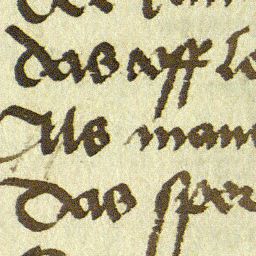 das aff le
Als man
Das sper